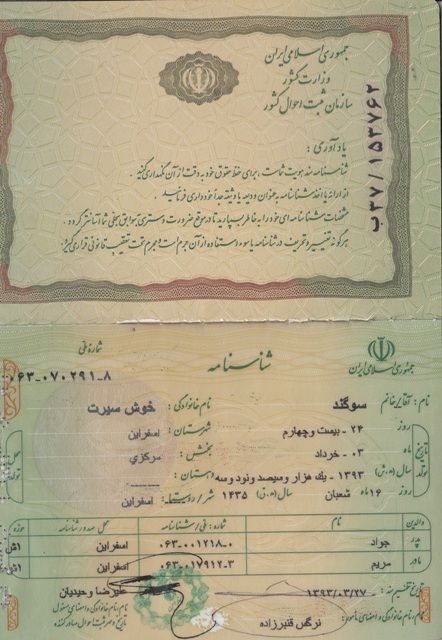 جمهوری اسلامی ایران
وزارت کشور
سازمان ثبت احوال کشور
ب۳۷/۱۵۳۷۶۲
یادآوری :
شناسنامه سند هویت شماست ، برای حفظ حقوق خود به دقت از آن نگهداری کنید .
از ارائه یا اخذ شناسنامه به عنوان ودیعه یا وثیقه جداً خودداری فرمائید .
مشخصات شناسنامه ای خود را به خاطر بسپارید تا در مواقع ضرورت دسترسی به سوابق سجلی شما آسانتر گردد .
هرگونه تغییر و تحریف در شناسنامه یا سوء استفاده از آن جرم است و مجرم تحت تعقیب قانونی قرار می گیرد
جمهوری اسلامی ایران
شناسنامه
شماره ملی
۰۶۳-۰۷۰۲۹۱-۸
نام - آقا/خانم : سوگند
نام خانوادگی : خوش سیرت
تاریخ تولد
روز ۲۴ - بیست و چهارم
ماه ۰۳ - خرداد
سال (ه.ش) ۱۳۹۳ - یک هزار و سیصد ونود و سه
روز ۱۶ ماه شعبان سال (ه.ق) ۱۴۳۵
محل تولد
شهرستان : اسفراین
بخش : مرکزی
دهستان :
شهر/روستا : اسفراین
والدین نام شماره : ملی/شناسنامه محل صدور شناسنامه حوزه
پدر جواد ۰۶۳-۰۰۱۲۱۸-۰ اسفراین
مادر مریم ۰۶۳-۰۱۷۹۱۲-۳ اسفراین
تاریخ تنظیم سند : ۱۳۹۳/۰۳/۲۷
نام ، نام خانوادگی و امضای مأمور : نرگس قنبرزاده
علیرضا وحیدیان
نام ، نام خانوادگی و امضای مسئول
و مهر ثبت احوال صادر کننده